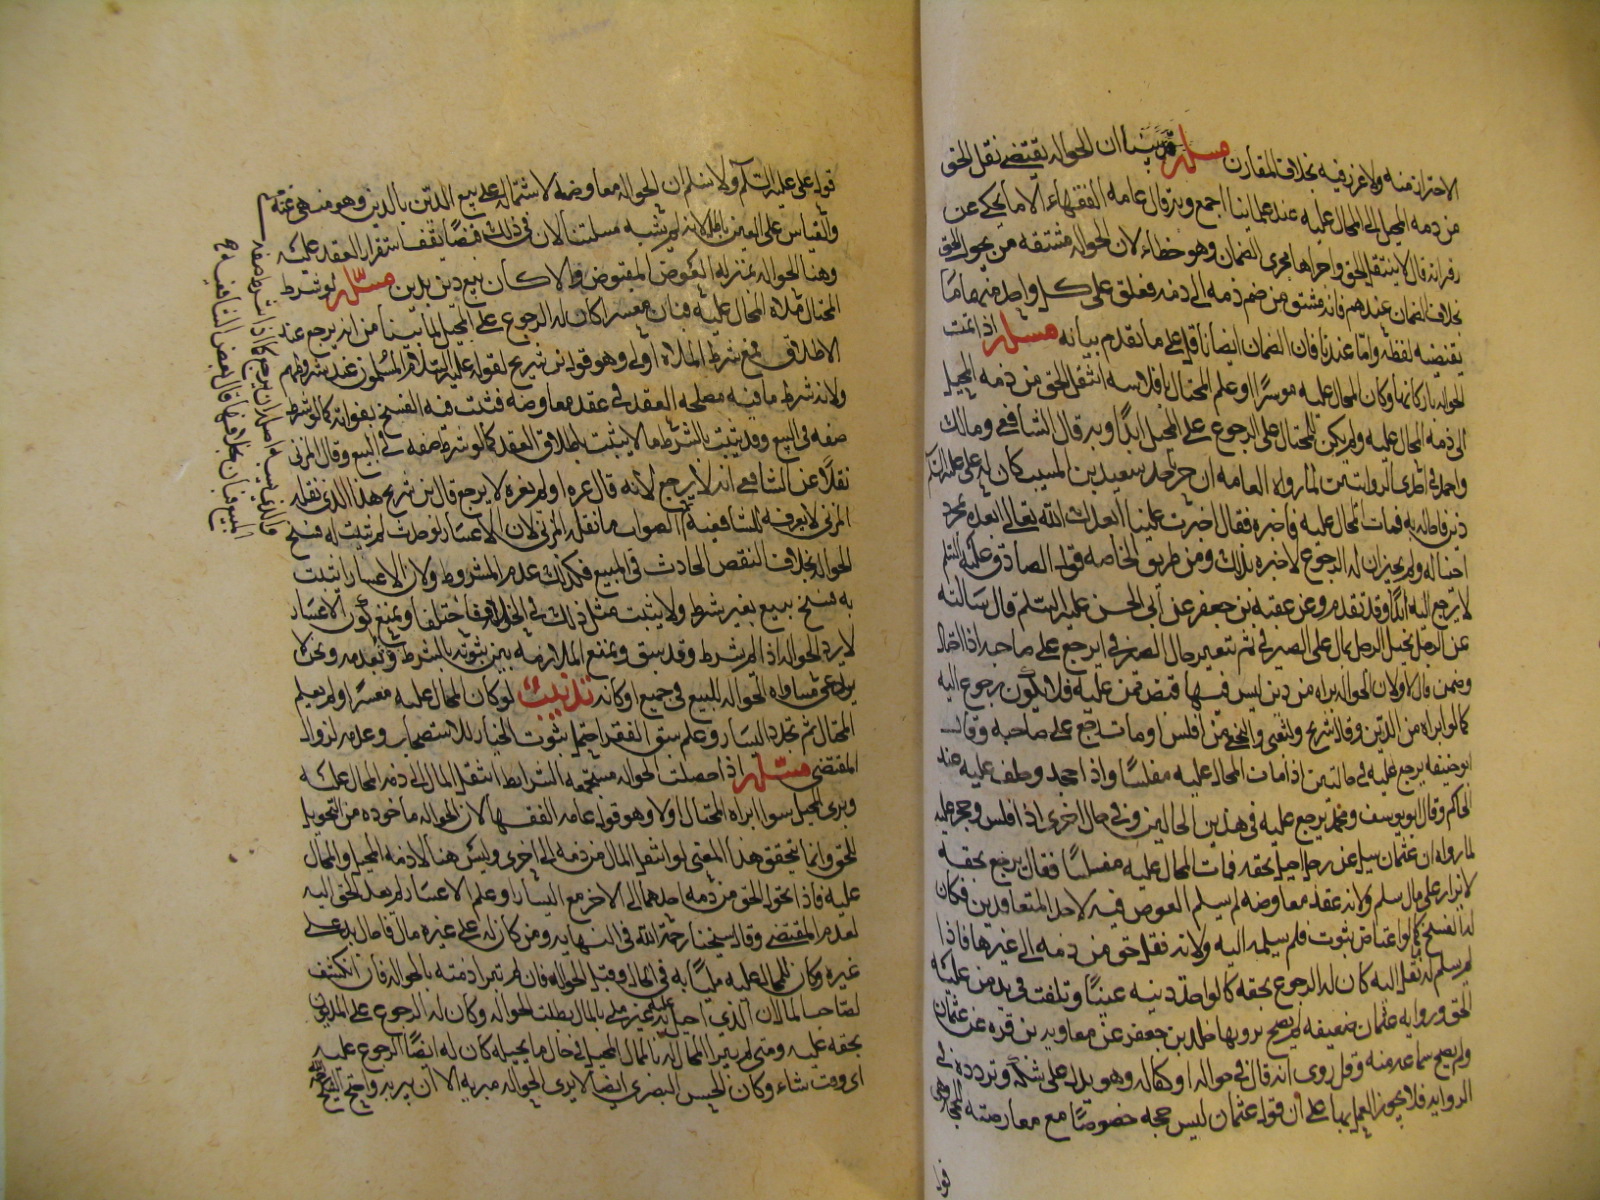 الاحتراز منه ولا غرر فيه بخلاف المقارن مسئلة قد بينا ان الحوالة يقتضي نقل الحق
من ذمه المحيل الى المحال عليه عند علمائنا اجمع وبه قال عامه الفقهاء الا ما يحكى عن
زفر انه قال لا ينتقل الحق واجراها مجرى الضمان وهو خطاء لان الحوالة مشتقه من تحويل الحق
بخلاف الضمان عندهم فانه مشتق من ضم ذمه الى ذمه فعلق على كل واحد منهما ما
يقتضيه لفظه واما عندنا فان الضمان ايضا ناقل على ما تقدم بيانه مسئلة اذا تمت
الحوالة باركانها وكان المحال عليه موسرا او علم المحتال بافلاسه انتقل الحق من ذمه المحيل
الى ذمه المحال عليه ولم يكن للمحتال على الرجوع على المحيل ابدا وبه قال الشافعي ومالك
واحمد في احدى الروايتين لما رواه العامه ان حزنا جد سعيد بن المسيب كان له على علي عليه السلام
دين فاحاله به فمات المحال عليه فاخبره فقال اخترت علينا ابعدك الله تعالى ابعده بمجرد
احتياله ولم يخبره ان له الرجوع لاخبره بذلك ومن طريق الخاصه قول الصادق عليه السلم
لا يرجع اليه ابدا وقد تقدم وعن عقبه بن جعفر عن ابي الحسن عليه السلم قال سالته
عن الرجل يحيل الرجل بمال على الصيرفي ثم تتغير حال الصيرفي ايرجع على صاحبه اذا احتال
وضمن قال لا ولان الحوالة براه من دين ليس فيها قبض ممن عليه فلا يكون له رجوع اليه
كما لو ابراه من الدين وقال شريح والشعبي والنخعي متى افلس او مات رجع على صاحبه وقال
ابو حنيفه يرجع عليه في حالتين اذا مات المحال عليه مفلسا واذا جحد وحلف عليه عند
الحاكم وقال ابو يوسف ومحمد يرجع عليه في هذين الحالين وفي حال اخرى اذا افلس وحجر عليه
لما رواه ان عثمان سئل عن رجل احيل بحقه فمات المحال عليه مفلسا فقال يرجع بحقه
لا توى على مال مسلم ولانه عقد معاوضه لم يسلم العوض فيه لاحد المتعاقدين فكان
له الفسخ كما لو اعتاض بثوب فلم يسلمه اليه ولانه نقل حق من ذمه الى غيرها فاذا
لم يسلم له نقل اليه كان له الرجوع بحقه كما لو اخذ بدينه عينا وتلفت في يد من عليه
الحق ورواية عثمان ضعيفه لم يصح يرويها خالد بن جعفر عن معاويه بن قره عن عثمان
ولم يصح سماعه منه وقد روى انه قال في حوالة او كفاله وهو يدل على شكه وتردده في
الرواية فلا يجوز العمل بها على ان قول عثمان ليس حجه خصوصا مع معارضته للحجة وهي
قول
قول علي عليه السلم ولا نسلم ان الحوالة معاوضه لاشتماله على بيع الدين بالدين وهو منهي عنه
والقياس على العين باطل لانه لم يشبه مسئلتنا لان في ذلك قبضا يقف استقرار العقد عليه
وهنا الحوالة بمنزله العوض المقبوض والا كان بيع دين بدين مسئلة لو شرط
المحتال ملاه المحال عليه فبان معسرا كان له الرجوع على المحيل لما بينا من انه يرجع عند
الاطلاق فمع شرط الملاه اولى وهو قول ابن شريح لقوله عليه السلام المسلمون عند شروطهم
ولانه شرط ما فيه مصلحه العقد في عقد معاوضه فثبت فيه الفسخ بفواته كما لو شرط
صفه في البيع وقد يثبت بالشرط ما لا يثبت باطلاق العقد كما لو شرط صفه في البيع وقال المزني
نقلا عن الشافعي انه لا يرجع لانه قال غره او لم يغره لا يرجع قال ابن شريح هذا الذي نقله
المزني لا يعرفه للشافعي الصواب ما نقله المزني لان الاعسار لو حدث لم يثبت له فسخ
الحوالة بخلاف النقص الحادث في المبيع فكذلك عدم المشروط ولان الاعسار لا يثبت
به فسخ بيع بغير شرط ولا يثبت مثل ذلك في الحوالة فاختلفا ويمنع كون الاعسار
لا يرد الحوالة اذا لم يشرط وقد سبق ويمنع الملازمه بين ثبوته بالشرط وبعدمه ونحن لا
ندعى مساواه الحوالة للبيع في جميع احكامه تذنيب لو كان المحال عليه معسرا ولم يعلم
المحتال ثم تجدد اليسار وعلم سبق الفقر احتمل ثبوت الخيار للاستصحاب وعدمه لزوال
المقتضى مسئلة اذا حصلت الحوالة مستجمعه الشرايط انتقل المال الى ذمه المحال عليه
وبرى المحيل سوا ابراه المحتال او لا وهو قول عامه الفقها لان الحوالة ماخوذه من التحويل
للحق وانما يتحقق هذا المعنى لو انتقل المال من ذمه الى اخرى وليس هنا الا ذمه المحيل والمحال
عليه فاذا تحول الحق من ذمه احدهما الى الاخر مع اليسار وعلم الاعسار لم يعد الحق اليه
لعدم المقتضي وقال شيخنا رحمة الله في النهاية ومن كان له على غيره مال فاحال به على
غيره وكان المحال عليه مليا به في الحال وقبل الحوالة فان لم تبرا ذمته بالحوالة فان انكشف
لصاحب المال ان الذي احيل به عليه غير ملي بالمال بطلت الحوالة وكان له الرجوع على المديون
بحقه عليه ومتى لم يبرا المحال له بالمال المحيل في حال ما يحيله كان له ايضا الرجوع عليه
اى وقت شاء وكان الحسن البصري ايضا لا يرى الحوالة مبريه الا ان يبريه واحتج الشيخ رحمه الله